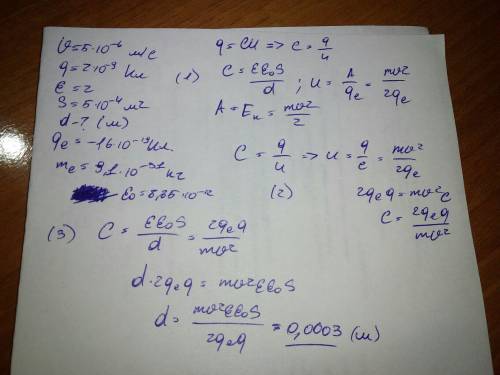 υ=5·10⁻⁶ м/с
q=2·10⁻⁹ Кл
ε=2
S=5·10⁻⁴ м²
d-? (м)
qₑ=-1,6·10⁻¹⁹ Кл.
mₑ=9,1·10⁻³¹ кг
ε₀=8,85·10⁻¹²
q=CU => C=q/u
(1) C=εε₀S/d ; u=A/qₑ=mυ²/2qₑ
A=Eₖ=mυ²/2
C=q/u => u=q/c=mυ²/2qₑ
(2) 2qₑq=mυ²C
C=2qₑq/mυ²
(3) C=εε₀S/d=2qₑq/mυ²
d·2qₑq=mυ²εε₀S
d=mυ²εε₀S/2qₑq=0,0003 (м)